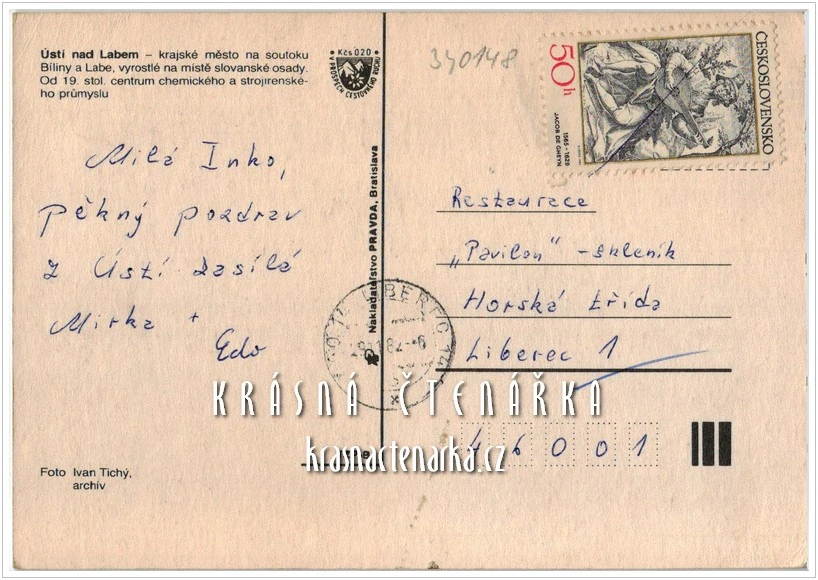 Ústí nad Labem – krajské město na soutoku
Bíliny a Labe, vyrostlé na místě slovanské osady.
Od 19. stol. centrum chemického a strojírenské-
ho průmyslu
Kčs 0.20
V PROSPĚCH CESTOVNÉHO RUCHU
340148
50h
ČESKOSLOVENSKO
JACOB DE GHEYN
1565-1629
Milá Inko,
pěkný pozdrav
z Ústí zasílá
Mirka +
Edo
Nakladateľstvo PRAVDA, Bratislava
LIBEREC
Restaurace
„Pavilon" - skleník
Horská třída
Liberec 1
46001
KRÁSNÁ ČTENÁŘKA
krasnactenarka.cz
Foto Ivan Tichý,
archív